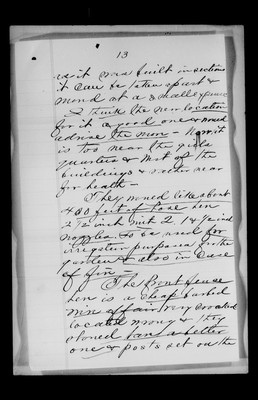 13
as it was built in sections
it can be taken apart &
moved at a small expense
I think the new location
for it a good one & would
advise the move - Now it
is too near the girls
quarters & most of the
buildings & rather near
for health -
They would like about
400 feet of hose
2 1/2 inch with 2 1 1/2 inch
nozzles to be used for
irrigation purposes for the
garden & also in case
of fire -
The Front fence
is a cheap barbed
wire affair very crooked
located wrong & they
should have a better
one & posts set on the